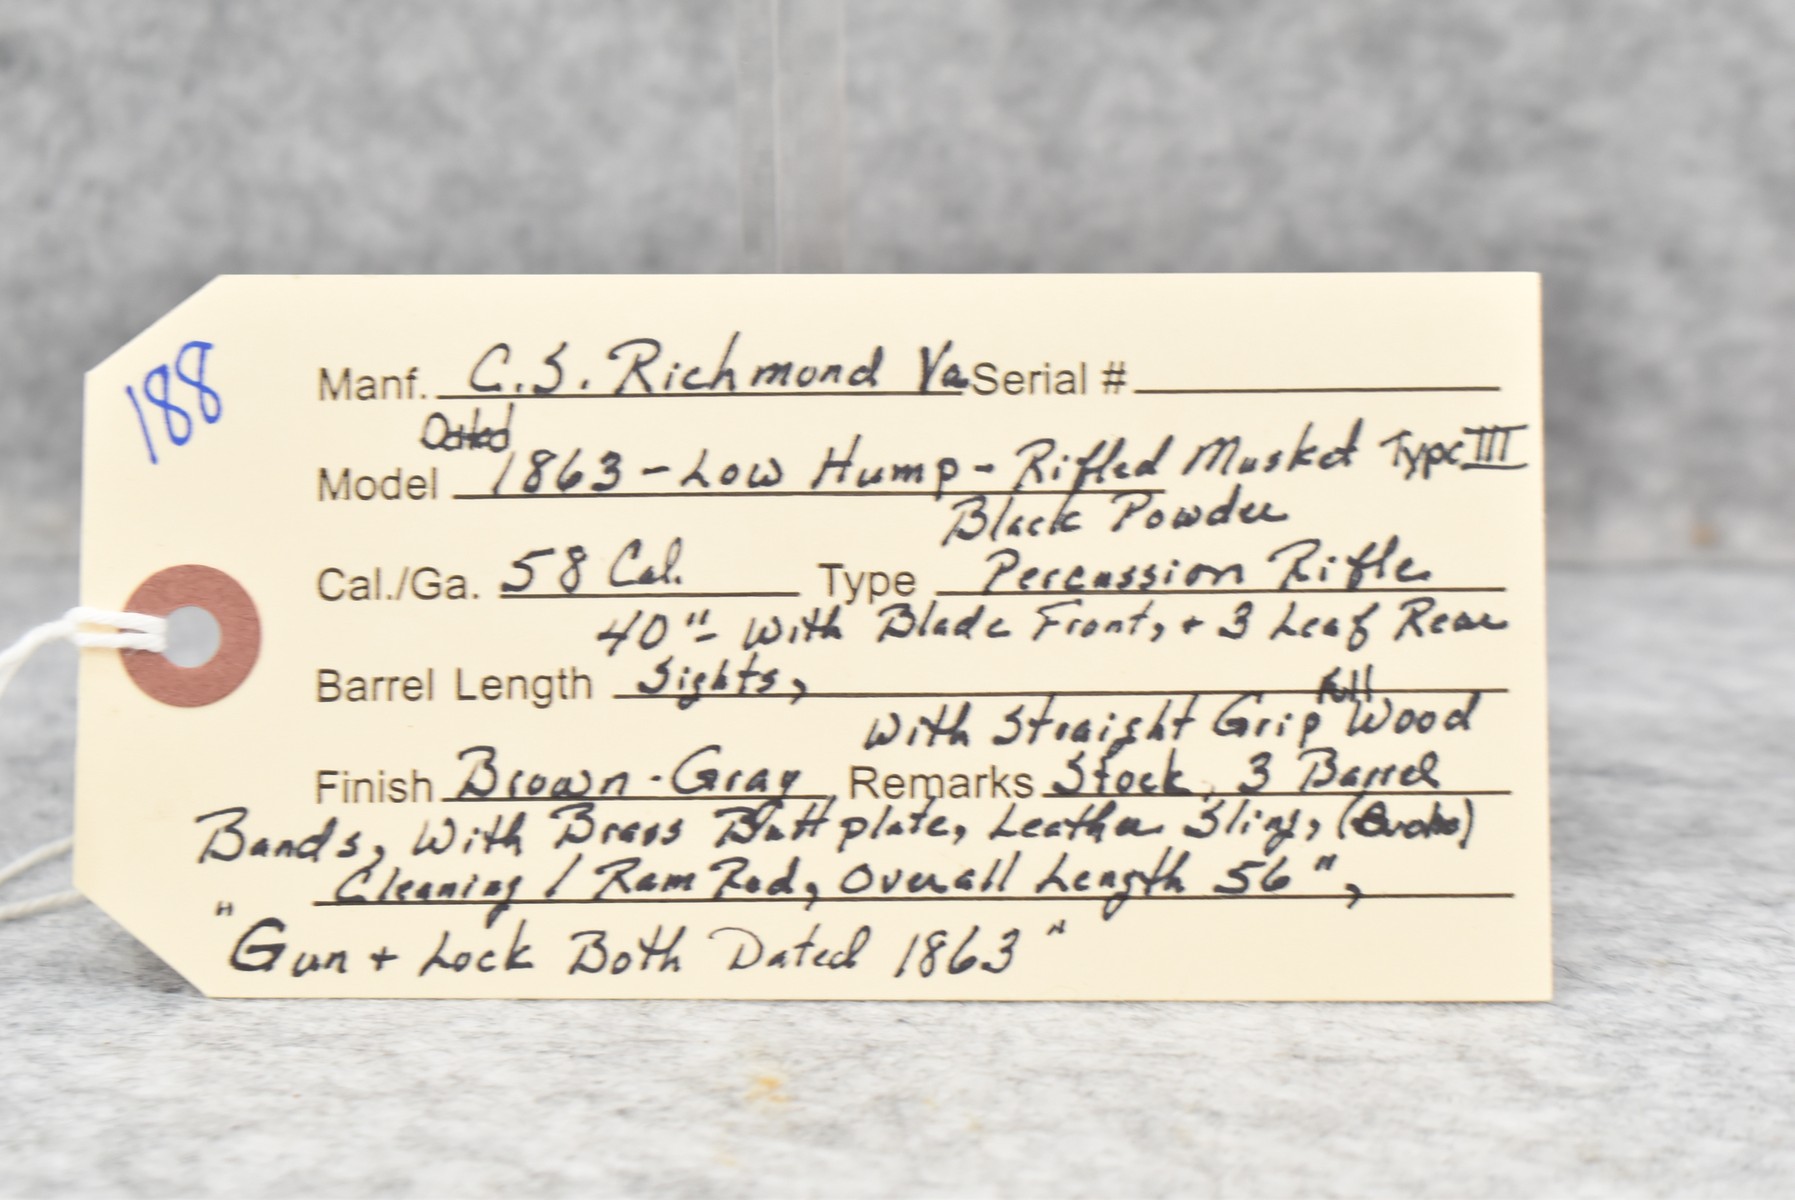 188
Manf. C.S. Richmond Va Serial #
Dated
Model 1863 - Low Hump - Rifled Musket Type III
Black Powder
Cal./Ga. 58 Cal. Type Percussion Rifle
40" - With Blade Front, + 3 Leaf Rear
Barrel Length Sights,
With Straight Grip Full Wood
Finish Brown-Gray Remarks Stock, 3 Barrel
Bands, With Brass Buttplate, Leather Sling, (Broke)
Cleaning / Ram Rod, Overall Length 56",
"Gun + Lock Both Dated 1863"